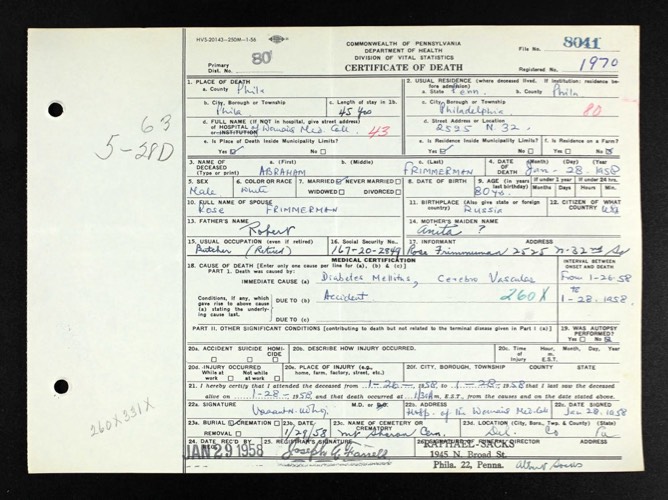 HVS-20143-250M-1-56
COMMONWEALTH OF PENNSYLVANIA
DEPARTMENT OF HEALTH
DIVISION OF VITAL STATISTICS
CERTIFICATE OF DEATH
File No. 8041
Primary Dist. No. 80
Registered No. 1970
1. PLACE OF DEATH
a. County Phila
2. USUAL RESIDENCE (where deceased lived. If institution: residence before admission)
a. State Penn. b. County Phila
b. City, Borough or Township Phila
c. Length of stay in 1b. 45 yrs
c. City, Borough or Township Philadelphia 80
d. FULL NAME (IF NOT in hospital, give street address) OF HOSPITAL or INSTITUTION Woman's Med. Coll. 43
d. Street Address or Location 2525 N. 32
e. Is Place of Death Inside Municipality Limits? Yes No
e. Is Residence Inside Municipality Limits? Yes No
f. Is Residence on a Farm? Yes No
63
5-28D
3. NAME OF DECEASED (Type or print)
a. (First) ABRAHAM
b. (Middle)
c. (Last) FRIMMERMAN
4. DATE OF DEATH (Month) (Day) (Year) Jan-28-1958
5. SEX Male
6. COLOR OR RACE White
7. MARRIED NEVER MARRIED WIDOWED DIVORCED
8. DATE OF BIRTH
9. AGE (in years last birthday) 80 yrs
If under 1 year Months Days
If under 24 hrs. Hours Min.
10. FULL NAME OF SPOUSE
ROSE FRIMMERMAN
11. BIRTHPLACE (Also give state or foreign country) RUSSIA
12. CITIZEN OF WHAT COUNTRY USA
13. FATHER'S NAME Robert
14. MOTHER'S MAIDEN NAME Anita ?
15. USUAL OCCUPATION (even if retired) Butcher (Retired)
16. Social Security No. 167-20-2849
17. INFORMANT ADDRESS
Rose Frimmerman 2525 N-32nd St
MEDICAL CERTIFICATION
18. CAUSE OF DEATH [Enter only one cause per line for (a), (b) & (c)]
INTERVAL BETWEEN ONSET AND DEATH
PART 1. Death was caused by:
IMMEDIATE CAUSE (a) Diabetes Mellitus, Cerebro Vascular
From 1-26-58 to 1-28-1958.
Conditions, if any, which gave rise to above cause (a) stating the underlying cause last.
DUE TO (b) Accident 260X
DUE TO (c)
PART II. OTHER SIGNIFICANT CONDITIONS [contributing to death but not related to the terminal disease given in Part I (a)]
19. WAS AUTOPSY PERFORMED? Yes No
20a. ACCIDENT SUICIDE HOMICIDE
20b. DESCRIBE HOW INJURY OCCURRED.
20c. Time of Injury Hour, m. E.S.T. Month, Day, Year
20d. INJURY OCCURRED While at work Not while at work
20e. PLACE OF INJURY (e.g., home, farm, factory, street, etc.)
20f. CITY, BOROUGH, TOWNSHIP COUNTY STATE
21. I hereby certify that I attended the deceased from 1-26-1958 to 1-28-1958 that I last saw the deceased alive on 1-28-1958 and that death occurred at m., E.S.T., from the causes and on the date stated above.
22a. SIGNATURE M.D. or D.O.
22b. ADDRESS Hosp. of the Woman's Med. Coll
22c. DATE SIGNED Jan 28, 1958
260X331X
23a. BURIAL CREMATION REMOVAL
23b. DATE 1/29/58
23c. NAME OF CEMETERY OR CREMATORY Mt Sharon Cem.
23d. LOCATION (City, Boro, Twp. & County) (State) Del. Co Pa
24. DATE REC'D JAN 29 1958
25. REGISTRAR'S SIGNATURE Joseph A. Farrell
RAPHAEL-SACKS ADDRESS
1945 N. Broad St.
Phila. 22, Penna. Albert Sacks